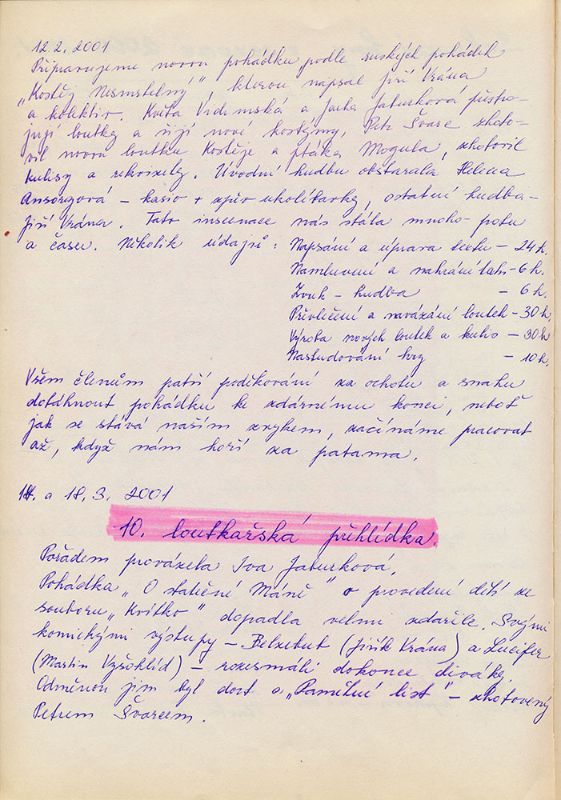 12.2. 2001
Připravujeme novou pohádku podle ruských pohádek
„Kostěj Nesmrtelný", kterou napsal Jiří Vrána
a kolektiv. Květa Videmská a Jarka Jaturková přestro-
jují loutky a šijí nové kostýmy, Petr Švarc zhoto-
vil novou loutku Kostěje a ptáka Mogula, zhotovil
kulisy a rekvizity. Úvodní hudbu obstarala Helena
Ansorgová – kasio + zpěv ukolébavky, ostatní hudba –
Jiří Vrána. Tato inscenace nás stála mnoho potu
a času. Několik údajů: Napsání a úprava textu – 24 h.
Namluvení a nahrání – 6 h.
Zvuk – hudba – 6 h.
Převlečení a navázání loutek – 30 h.
Výroba nových loutek a kulis – 30 h
Nastudování hry – 10 h.
Všem členům patří poděkování za ochotu a snahu
dotáhnout pohádku ke zdárnému konci, neboť
jak se stává naším zvykem, začínáme pracovat
až, když nám hoří za patama.
a 18. 3. 2001
10. loutkařská přehlídka.
Pořadem provázela Iva Jaturková.
Pohádka „O statečné Máně" v provedení dětí ze
souboru „Kvítko" dopadla velmi zdařile. Svými
komickými výstupy – Belzebub (Jiřík Vrána) a Lucifer
(Martin Vyšohlíd) – rozesmáli dokonce diváky.
Odměnou jim byl dort a „Pamětní list" – zhotovený
Petrem Švarcem.